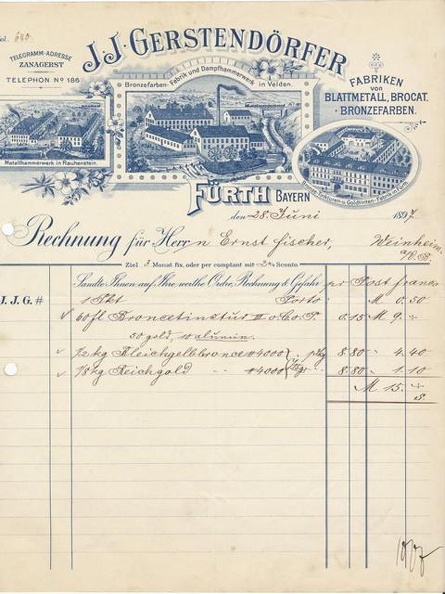 Fol. 640.
TELEGRAMM-ADRESSE
ZANAGERST
TELEPHON No 186
J. J. GERSTENDÖRFER
Bronzefarben- Fabrik und Dampfhammerwerk in Velden.
FABRIKEN
von
BLATTMETALL, BROCAT.
BRONZEFARBEN.
Metallhammerwerk in Rauhenstein.
FÜRTH BAYERN
den 28. Juni 1897
Rechnung für Herrn Ernst Fischer, Weinheim
a/B.
Ziel 3 Monat fix, oder per comptant mit % Sconto.
Sandte Ihnen auf Ihre werthe Ordre, Rechnung & Gefahr pr Post franco
J. J. G. # 1 Pkt Porto M 0.50
60 fl Broncetinctur II 0.15 M 9.
50 gold, 10 alumin.
1/2 kg Bleichgelbbronce 4000 8.80 4.40
1/8 kg Reichgold " 4000 8.80 1.10
M 15.